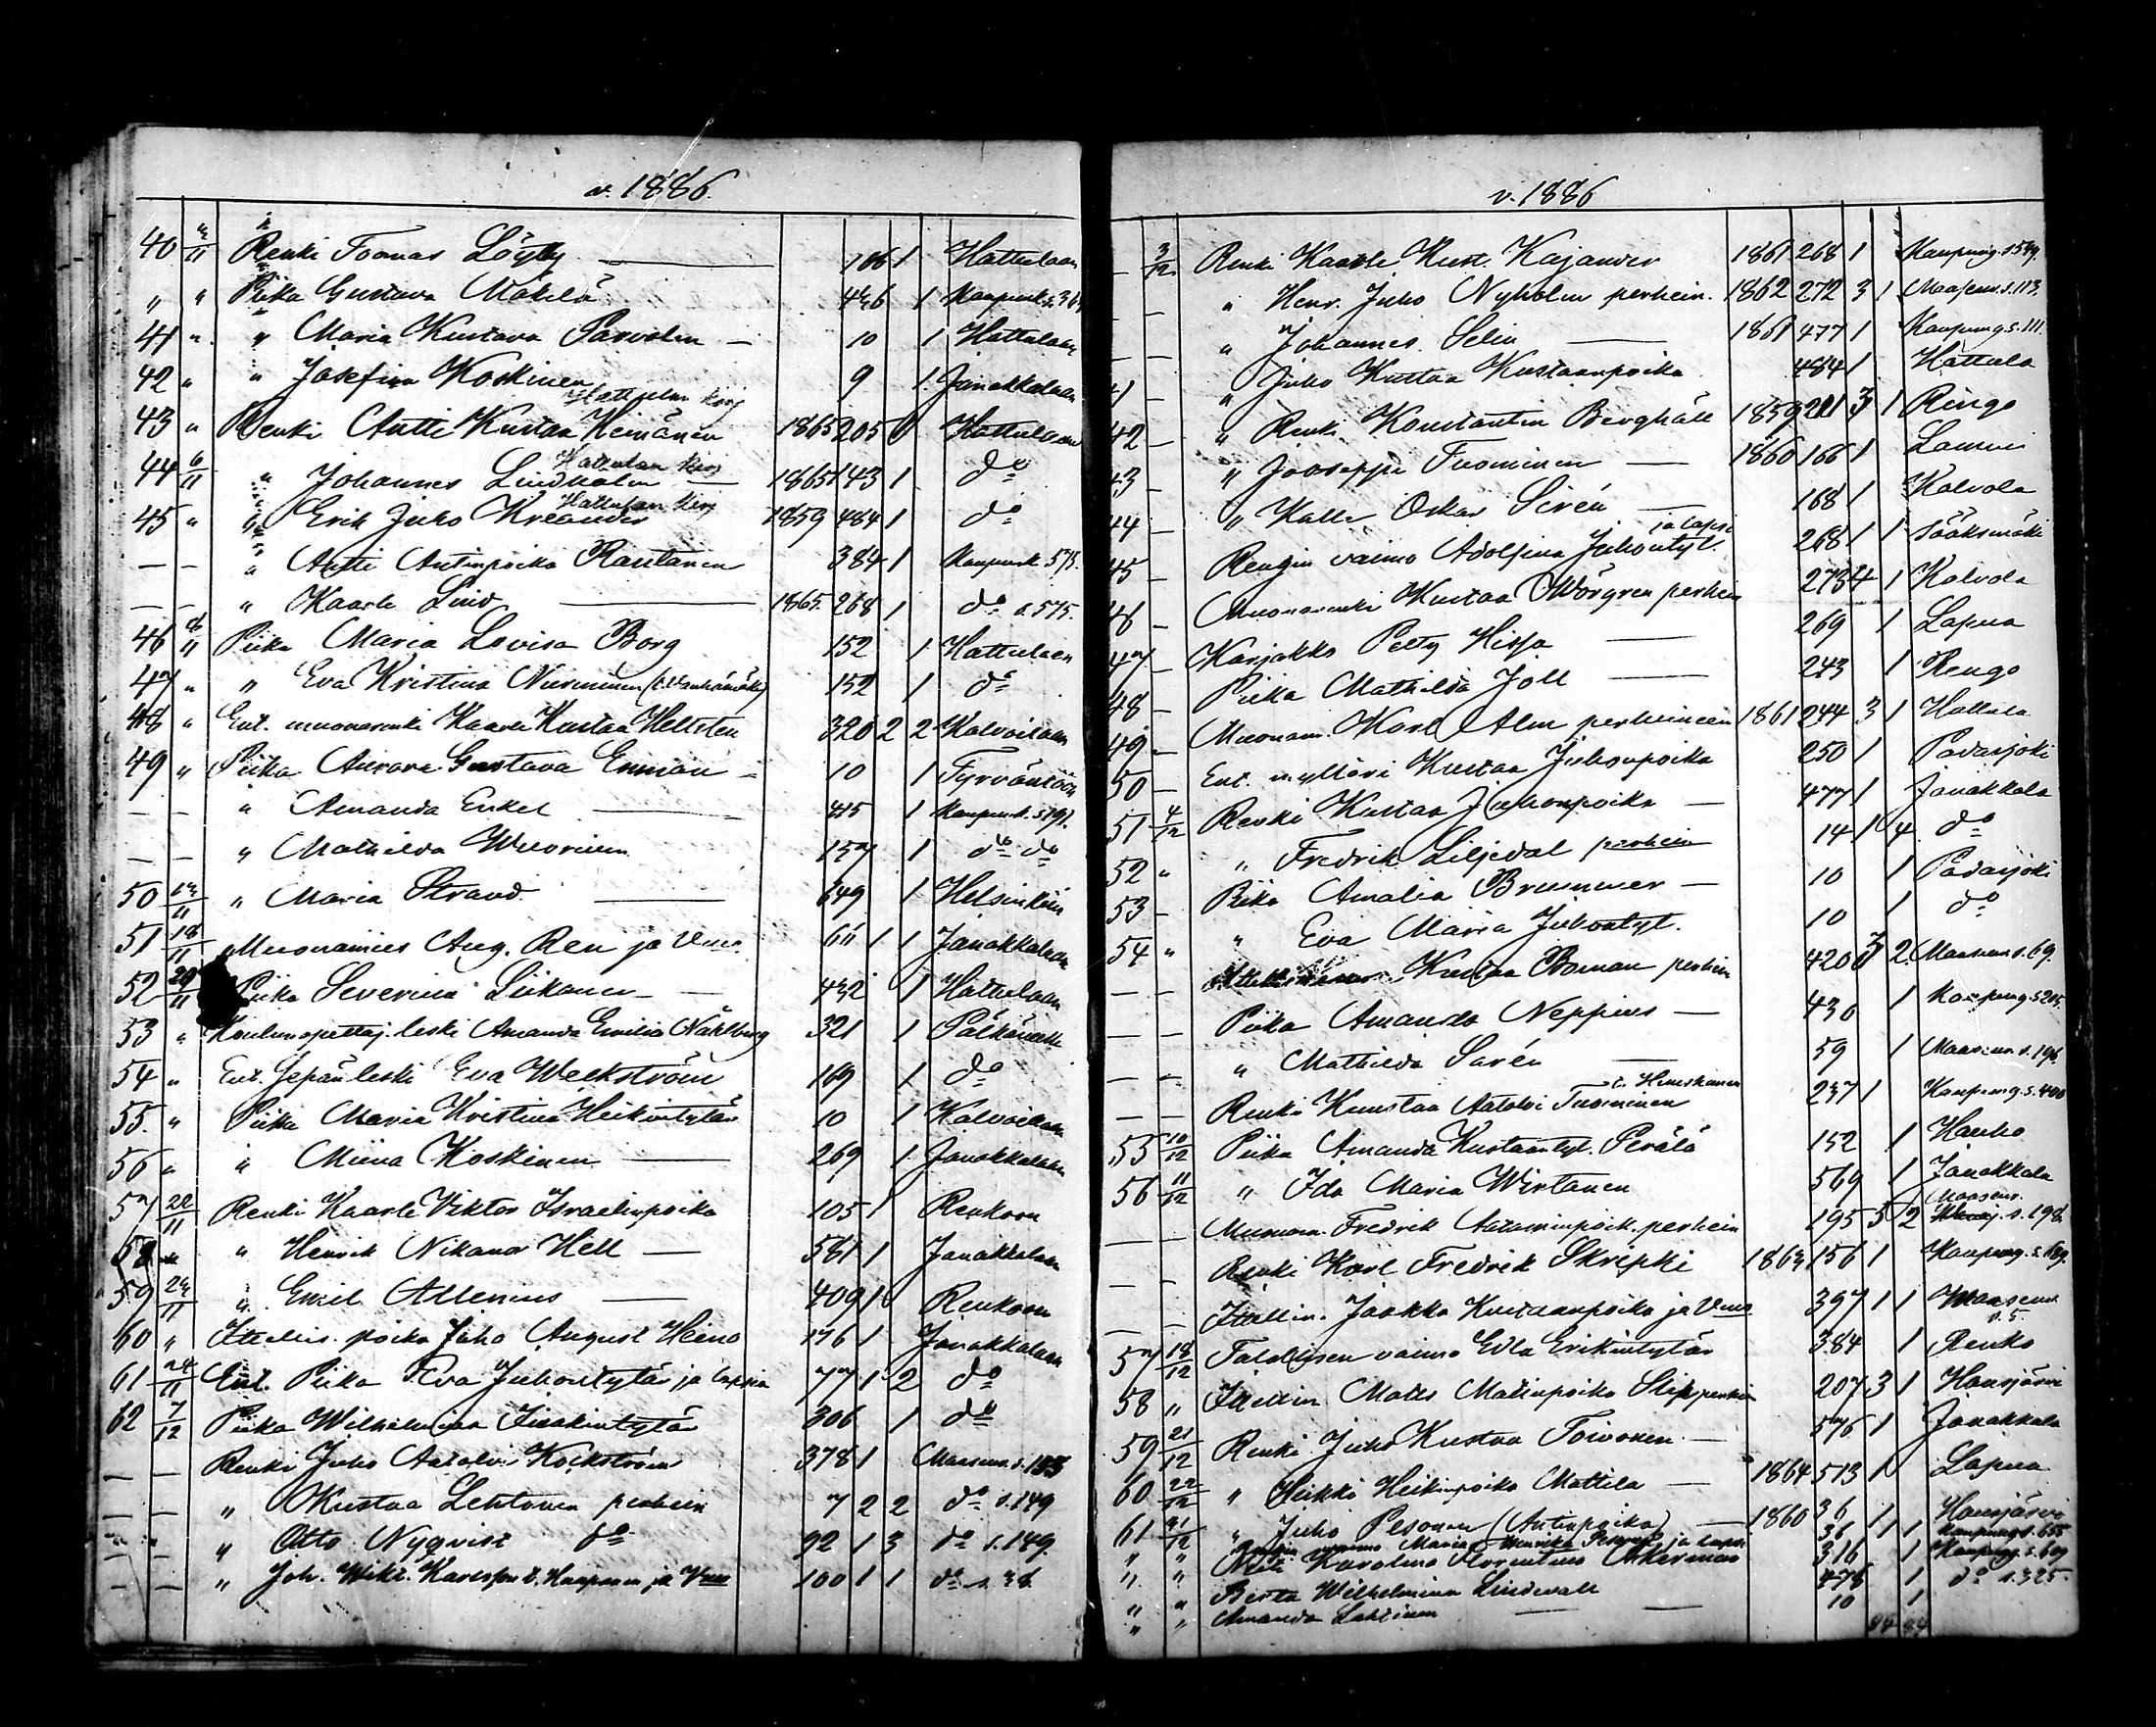 v. 1886.
40 11 Renki Toomas Löytty 106 1 Hattulaan
" " Piika Gustava Mäkelä 436 1 Kaupunk.
41 " " Maria Kustava 10 1 Hattulaan
42 " " Josefina Koskinen 9 1 Janakkalaan
43 " Renki Antti Kustaa Heinänen 1865 205 Hattulaan
44 6/11 " Johannes Lindholm 1865 143 1 do
45 " " Erik Juho Kreander 1859 484 1 do
— — " Antti Antinpoika Rautanen 384 1 Kaupunk. 575.
— — " Kaarle Lind 1865. 268 1 do s. 575.
46 Piika Maria Lovisa Borg 152 1 Hattulaan
47 " " Eva Kristina Nurminen 152 1 do
48 " Ent. muonarenki Kaarle Kustaa Hellsten 320 2 2 Kalvolaan
49 " Piika Aurora Gustava 10 1 Tyrväntöön
— — " Amanda Enkel 415 1 Kaupunk. s 191.
— — " Mathilda Wuorinen 157 1 do do
50 13/11 " Maria Strand 649 1 Helsinkiin
51 18/11 Muonamies Aug. Ren ja Vmo 611 1 1 Janakkalaan
52 20/11 Piika Severina Liikanen 432 1 Hattulaan
53 " Koulunopettaj. leski Amanda Emilia Nählberg 321 1 Pälkäneelle
54 " Ent. Sepän leski Eva Weckström 169 1 do
55. " Piika Maria Kristina Heikintytär 10 1 Kalvolaan
56 " " Miina Koskinen 269 1 Janakkalaan
57 22/11 Renki Kaarle Viktor Israelinpoika 105 1 Renkoon
58 " " Henrik Nikanor Hell 581 1 Janakkalaan
59 23/11 " Emil Allenius 409 1 Renkoon
60 " Itsellis. poika Juho August Heino 176 1 Janakkalaan
61 24/11 Ent. Piika Eva Juhontytär ja lapsia 77 1 2 do
62 7/12 Piika Wilhelmina Iisakintytär 306 1 do
— — Renki Juho Aatolvi Kockström 378 1 Maaseur. s. 155
— — " Kustaa Lehtonen perhein 7 2 2 do s. 149
" Otto Nyqvist do 92 1 3 do s. 149.
" Joh. Wikt. Karlsson t. Haapanen ja Vmo 100 1 1 do s. 36.
v. 1886
— 3/12 Renki Kaarle Kust. Kajander 1861 268 1 Kaupung. s 549.
— — " Henr. Juho Nyholm perhein. 1862 272 3 1 Maaseur. s. 113.
— — " Johannes Selin 1861 477 1 Kaupung. s. 111.
41 — " Juho Kustaa Kustaanpoika 484 1 Hattula
42 — " Renki Konstantin Berghäll 1859 211 3 1 Rengo
43 — " Jooseppi Tuominen 1860 166 1 Lammi
44 — " Kalle Oskar Sirén 168 1 Kalvola
45 — Rengin vaimo Adolfina Juhontyt. ja lapsi 268 1 1 Sääksmäki
46 — Muonarenki Kustaa Mörgren perhein 273 4 1 Kalvola
47 — Karjakko Hissa 269 1 Lapua
48 — Piika Mathilda Joll 243 1 Rengo
49 — Muonam. Karl Alm perheineen 1861 244 3 1 Hattula
50 — Ent. mylläri Kustaa Juhonpoika 250 1 Padasjoki
51 4/12 Renki Kustaa Juhonpoika 477 1 Janakkala
52 " " Fredrik Liljedal perhein 14 1 4 do
53 — Piika Amalia Brummer 10 1 Padasjoki
54 " " Eva Maria Juhontyt. 10 1 do
— — Kustaa Boman perhein 420 3 2 Maaseur. s. 69.
— — Piika Amanda Neppius 430 1 Kaupung. s 205.
— — " Mathilda Sarén 59 1 Maaseur. s. 196.
— — Renki Kunstaa Aatolvi Tuominen 237 1 Kaupung. s. 400
55 10/12 Piika Amanda Kustaantyt. Perälä 152 1 Hauho
56 11/12 " Ida Maria Wirtanen 569 1 Janakkala
— — Muonam. Fredrik Aataminpoik. perhein 195 5 2 Maaseur. s. 198.
— — Renki Karl Fredrik Skripki 1863 156 1 Kaupung. s. 689.
— — Itsellin. Jaakko Kustaanpoika ja Vmo 397 1 1 Maaseur. s. 5.
57 18/12 Talollisen vaimo Edla Erikintytär 384 1 Renko
58 " Itsellin Matts Matinpoika Slip perhein 207 3 1 Hausjärvi
59 21/12 Renki Juho Kustaa Toivonen 576 1 Janakkala
60 22/12 " Heikki Heikinpoika Mattila 1864 513 1 Lapua
61 31/12 " Juho Pesonen (Antinpoika) 1860 36 1 Hausjärvi
" " vaimo Maria ja lapsi 36 1 1 Kaupung. s. 655
" " Neiti Karolina Florentina Åkerman 316 1 Kaupung. s. 609
" " Berta Wilhelmina Lindevall 478 1 do s. 325.
" " Amanda Lahtinen 10 1